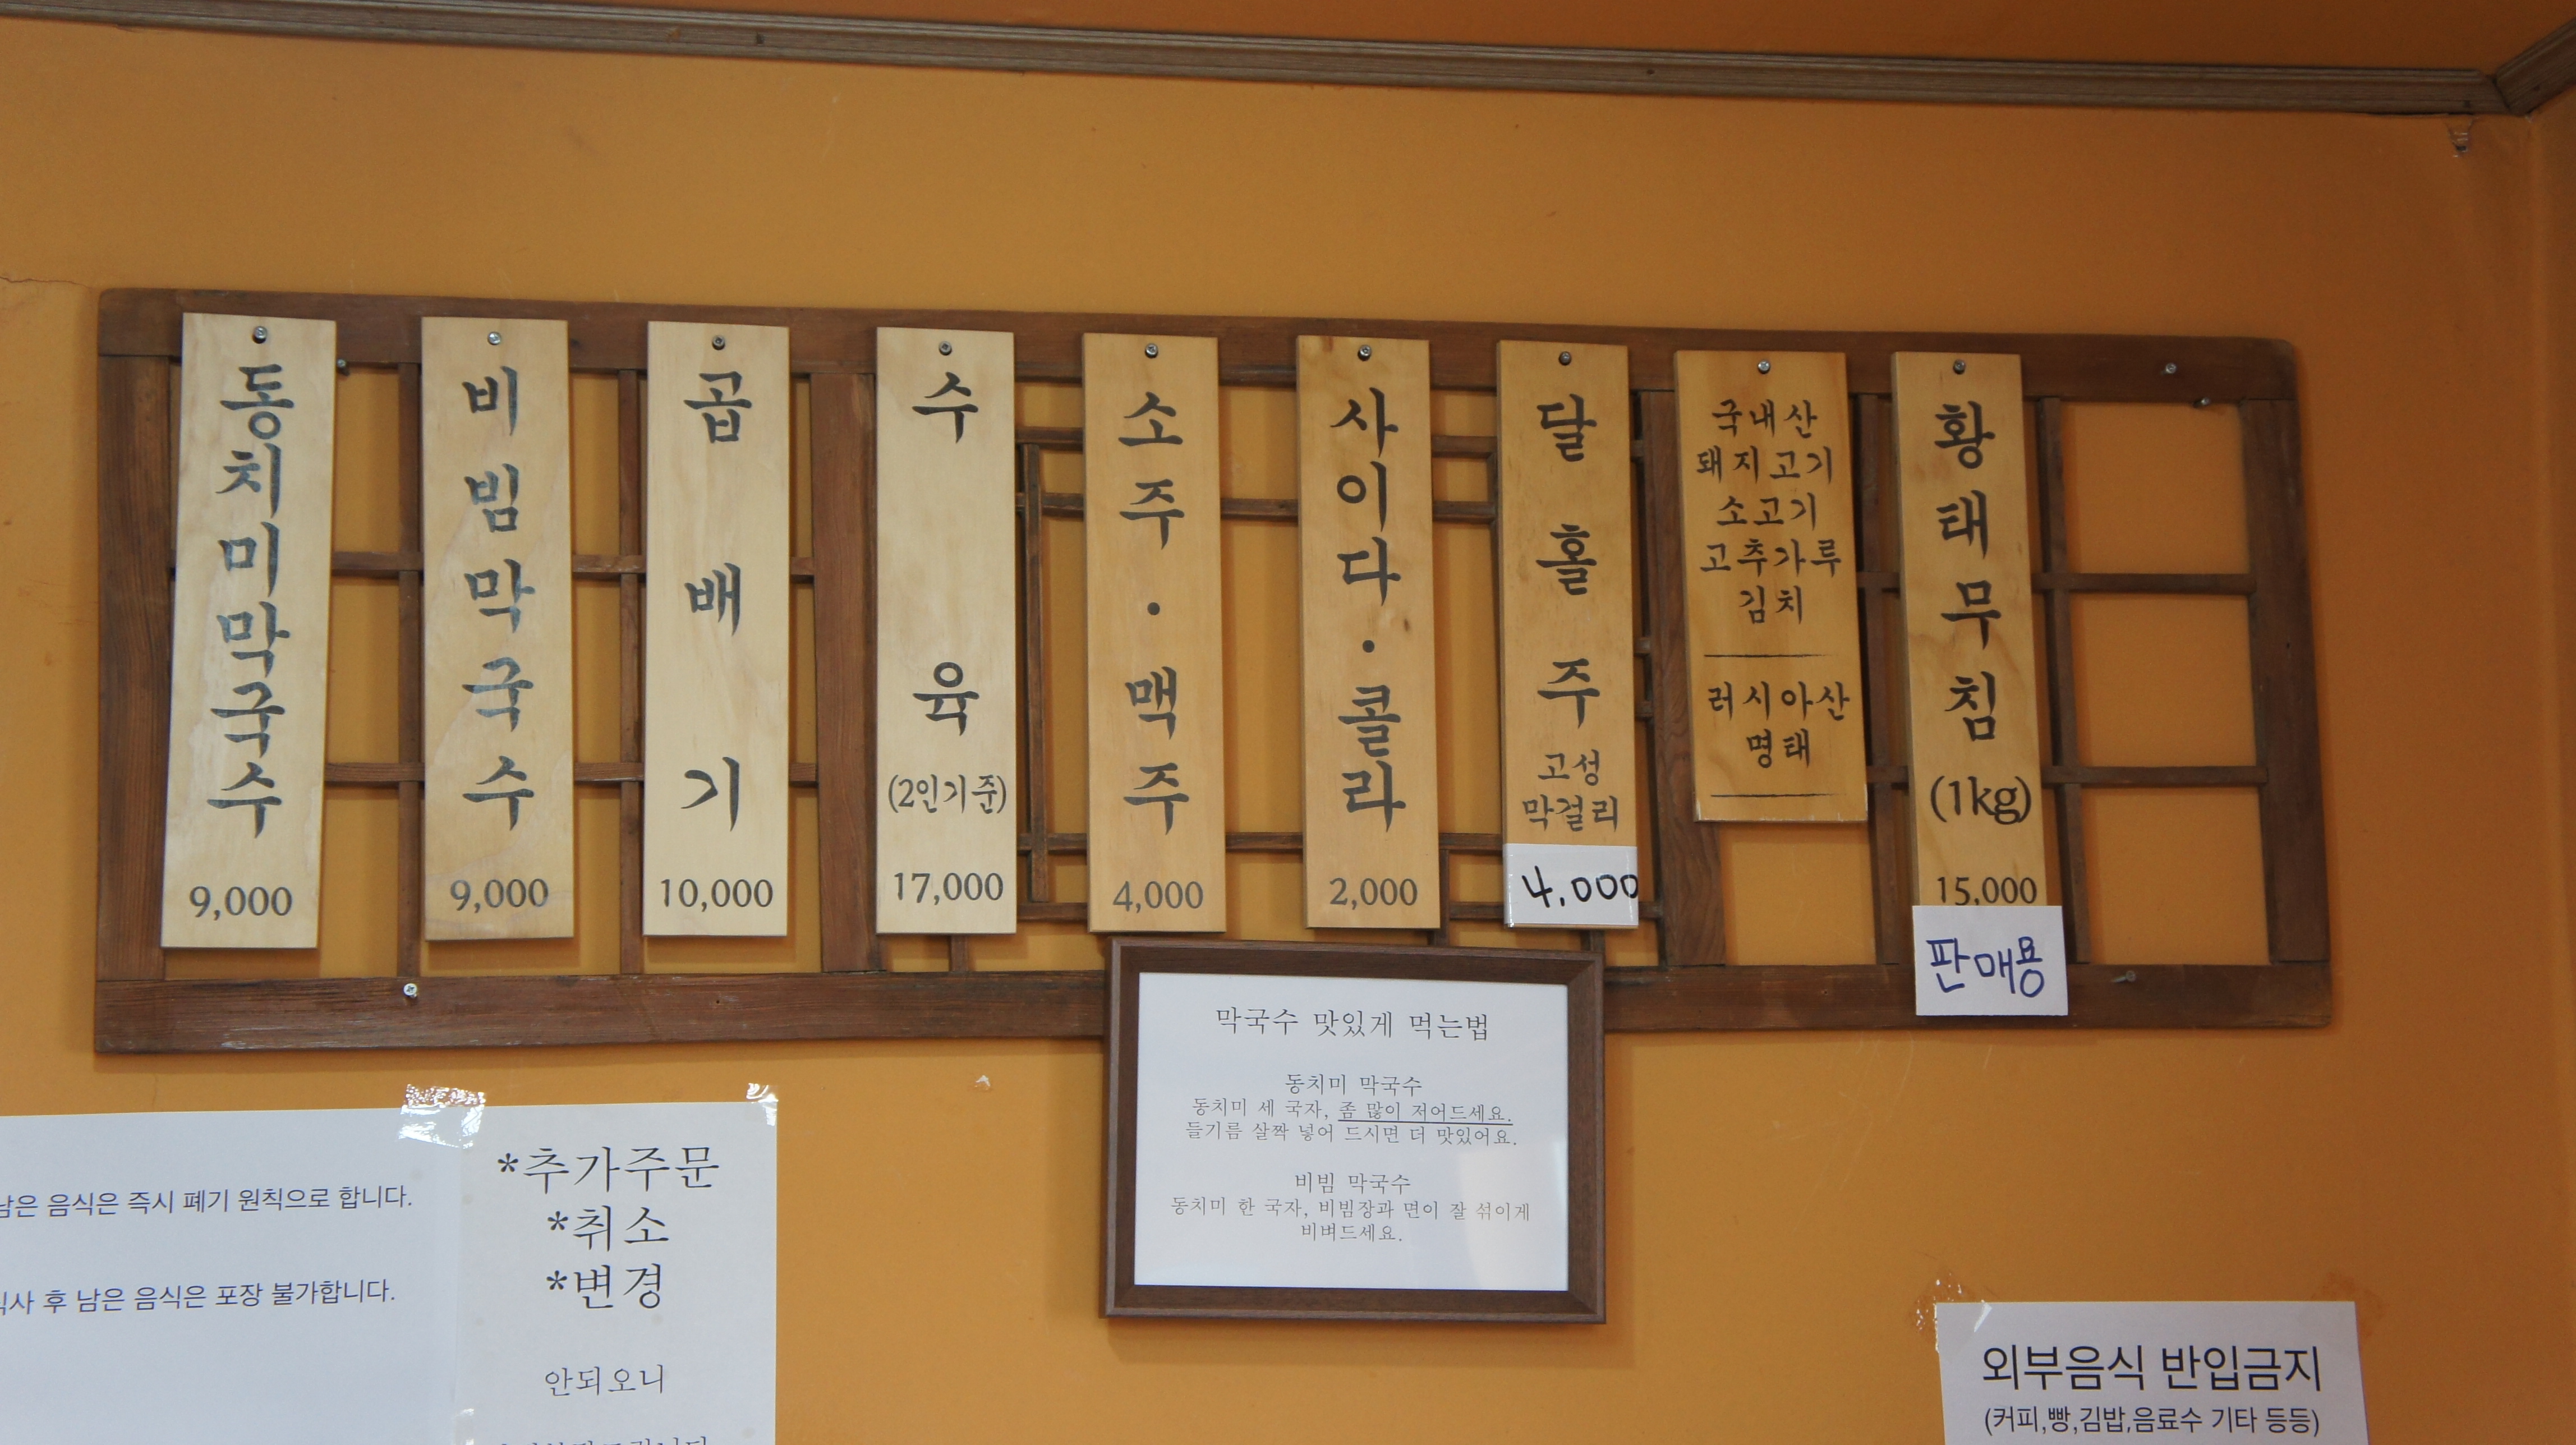 동치미막국수
9,000
비빔막국수
9,000
곱배기
10,000
수육
(2인기준)
17,000
소주·맥주
4,000
사이다·콜라
2,000
달홀주
고성
막걸리
4,000
국내산
돼지고기
소고기
고추가루
김치
러시아산
명태
황태무침
(1kg)
15,000
판매용
막국수 맛있게 먹는법
동치미 막국수
동치미 세 국자, 좀 많이 저어드세요.
들기름 살짝 넣어 드시면 더 맛있어요.
비빔 막국수
동치미 한 국자, 비빔장과 면이 잘 섞이게
비벼드세요.
남은 음식은 즉시 폐기 원칙으로 합니다.
후 남은 음식은 포장 불가합니다.
*추가주문
*취소
*변경
안되오니
외부음식 반입금지
(커피,빵,김밥,음료수 기타 등등)